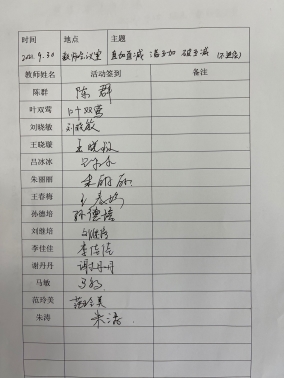 时间 地点 主题
2021.9.30 教师会议室 直加直减 满五加 破五减 (不进位)
教师姓名 活动签到 备注
陈群 陈群
叶双莺 叶双莺
刘晓敏 刘晓敏
王晓璇 王晓璇
吕冰冰 吕冰冰
朱丽丽 朱丽丽
王春梅 王春梅
孙德培 孙德培
刘继培 刘继培
李佳佳 李佳佳
谢丹丹 谢丹丹
马敏 马敏
范玲美 范玲美
朱涛 朱涛